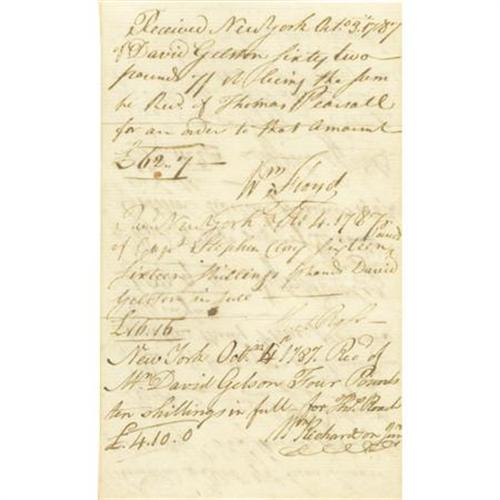 Received New York Oct.o 3d 1787
of David Gelston Sixty two
pounds 7/ it being the sum
he Recd. of Thomas Pearsall
for an order to that Amount
£62..7
Wm Floyd
New York 4. 1787
of Capt Stephen Sixteen
Sixteen Shillings David
Gelston in full
£16.16
Ross
New York Octr. 4th 1787. Recd of
Mr. David Gelson Four Pounds
ten shillings in full for Thos.
£.4.10.0
Wm Richardson Junr